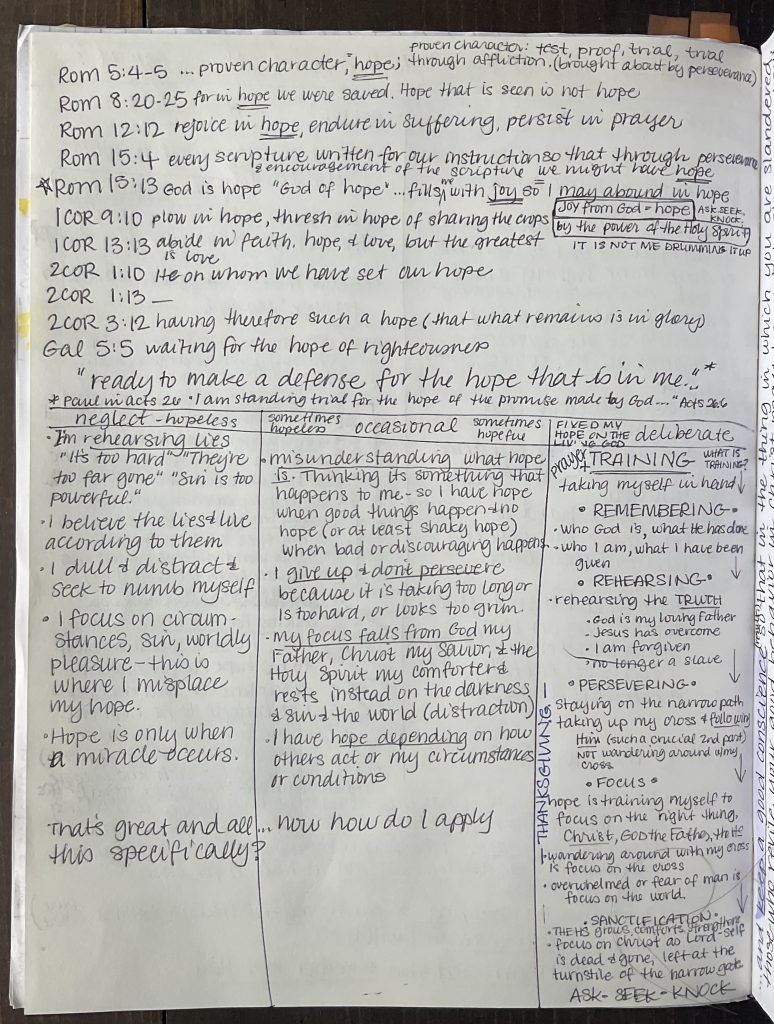 proven character: test, proof, trial, trial
Rom 5:4-5 ... proven character, "hope; through affliction. (brought about by perseverance)
Rom 8:20-25 for in hope we were saved. Hope that is seen is not hope
Rom 12:12 rejoice in hope, endure in suffering, persist in prayer
Rom 15:4 every scripture written for our instruction so that through perseverance
& encouragement of the scripture we might have hope
*Rom 15:13 God is hope "God of hope" ... fills me with joy so I may abound in hope
1COR 9:10 plow in hope, thresh in hope of sharing the crops
Joy from God = hope
by the power of the Holy Spirit
ASK SEEK
KNOCK.
IT IS NOT ME DRUMMING IT UP
1COR 13:13 abide in faith, hope, & love, but the greatest
is love
2COR 1:10 He on whom we have set our hope
2COR 1:13 —
2COR 3:12 having therefore such a hope (that what remains is in glory)
Gal 5:5 waiting for the hope of righteousness
"ready to make a defense for the hope that is in me."*
* Paul in acts 26 • I am standing trial for the hope of the promise made by God..." Acts 26:6
neglect - hopeless
• I'm rehearsing lies
"It's too hard" "They're
too far gone" "Sin is too
powerful."
• I believe the lies & live
according to them
• I dull & distract &
seek to numb myself
• I focus on circum-
stances, sin, worldly
pleasure - this is
where I misplace
my hope.
• Hope is only when
a miracle occurs.
sometimes
hopeless
occasional
sometimes
hopeful
• misunderstanding what hope
is. Thinking its something that
happens to me - so I have hope
when good things happen & no
hope (or at least shaky hope)
when bad or discouraging happens.
• I give up & don't persevere
because it is taking too long or
is too hard, or looks too grim.
• My focus falls from God my
Father, Christ my Savior, & the
Holy Spirit my comforter &
rests instead on the darkness
& sin & the world (distraction)
• I have hope depending on how
others act or my circumstances
or conditions
That's great and all ... now how do I apply
this specifically?
FIXED MY
HOPE ON THE
LIVING GOD
deliberate
prayer +
TRAINING
WHAT IS
TRAINING?
taking myself in hand
• REMEMBERING •
• who God is, what He has done
• who I am, what I have been
given
• REHEARSING •
• rehearsing the TRUTH
• God is my loving Father
- Jesus has overcome
• I am forgiven
• no longer a slave
• PERSEVERING •
staying on the narrow path
taking up my cross & following
Him (such a crucial 2nd part)
NOT wandering around w/my
cross
• FOCUS •
hope is training myself to
focus on the right thing,
Christ, GOD the Father, the HS
• wandering around with my cross
is focus on the cross
• overwhelmed or fear of man is
focus on the world.
• SANCTIFICATION •
• THE HS grows, comforts, strengthens
• focus on Christ as Lord - self
is dead & gone, left at the
turnstile of the narrow gate
ASK - SEEK - KNOCK
THANKSGIVING
... and keep a good conscience so that in the thing in which you are slandered,
those who revile your good